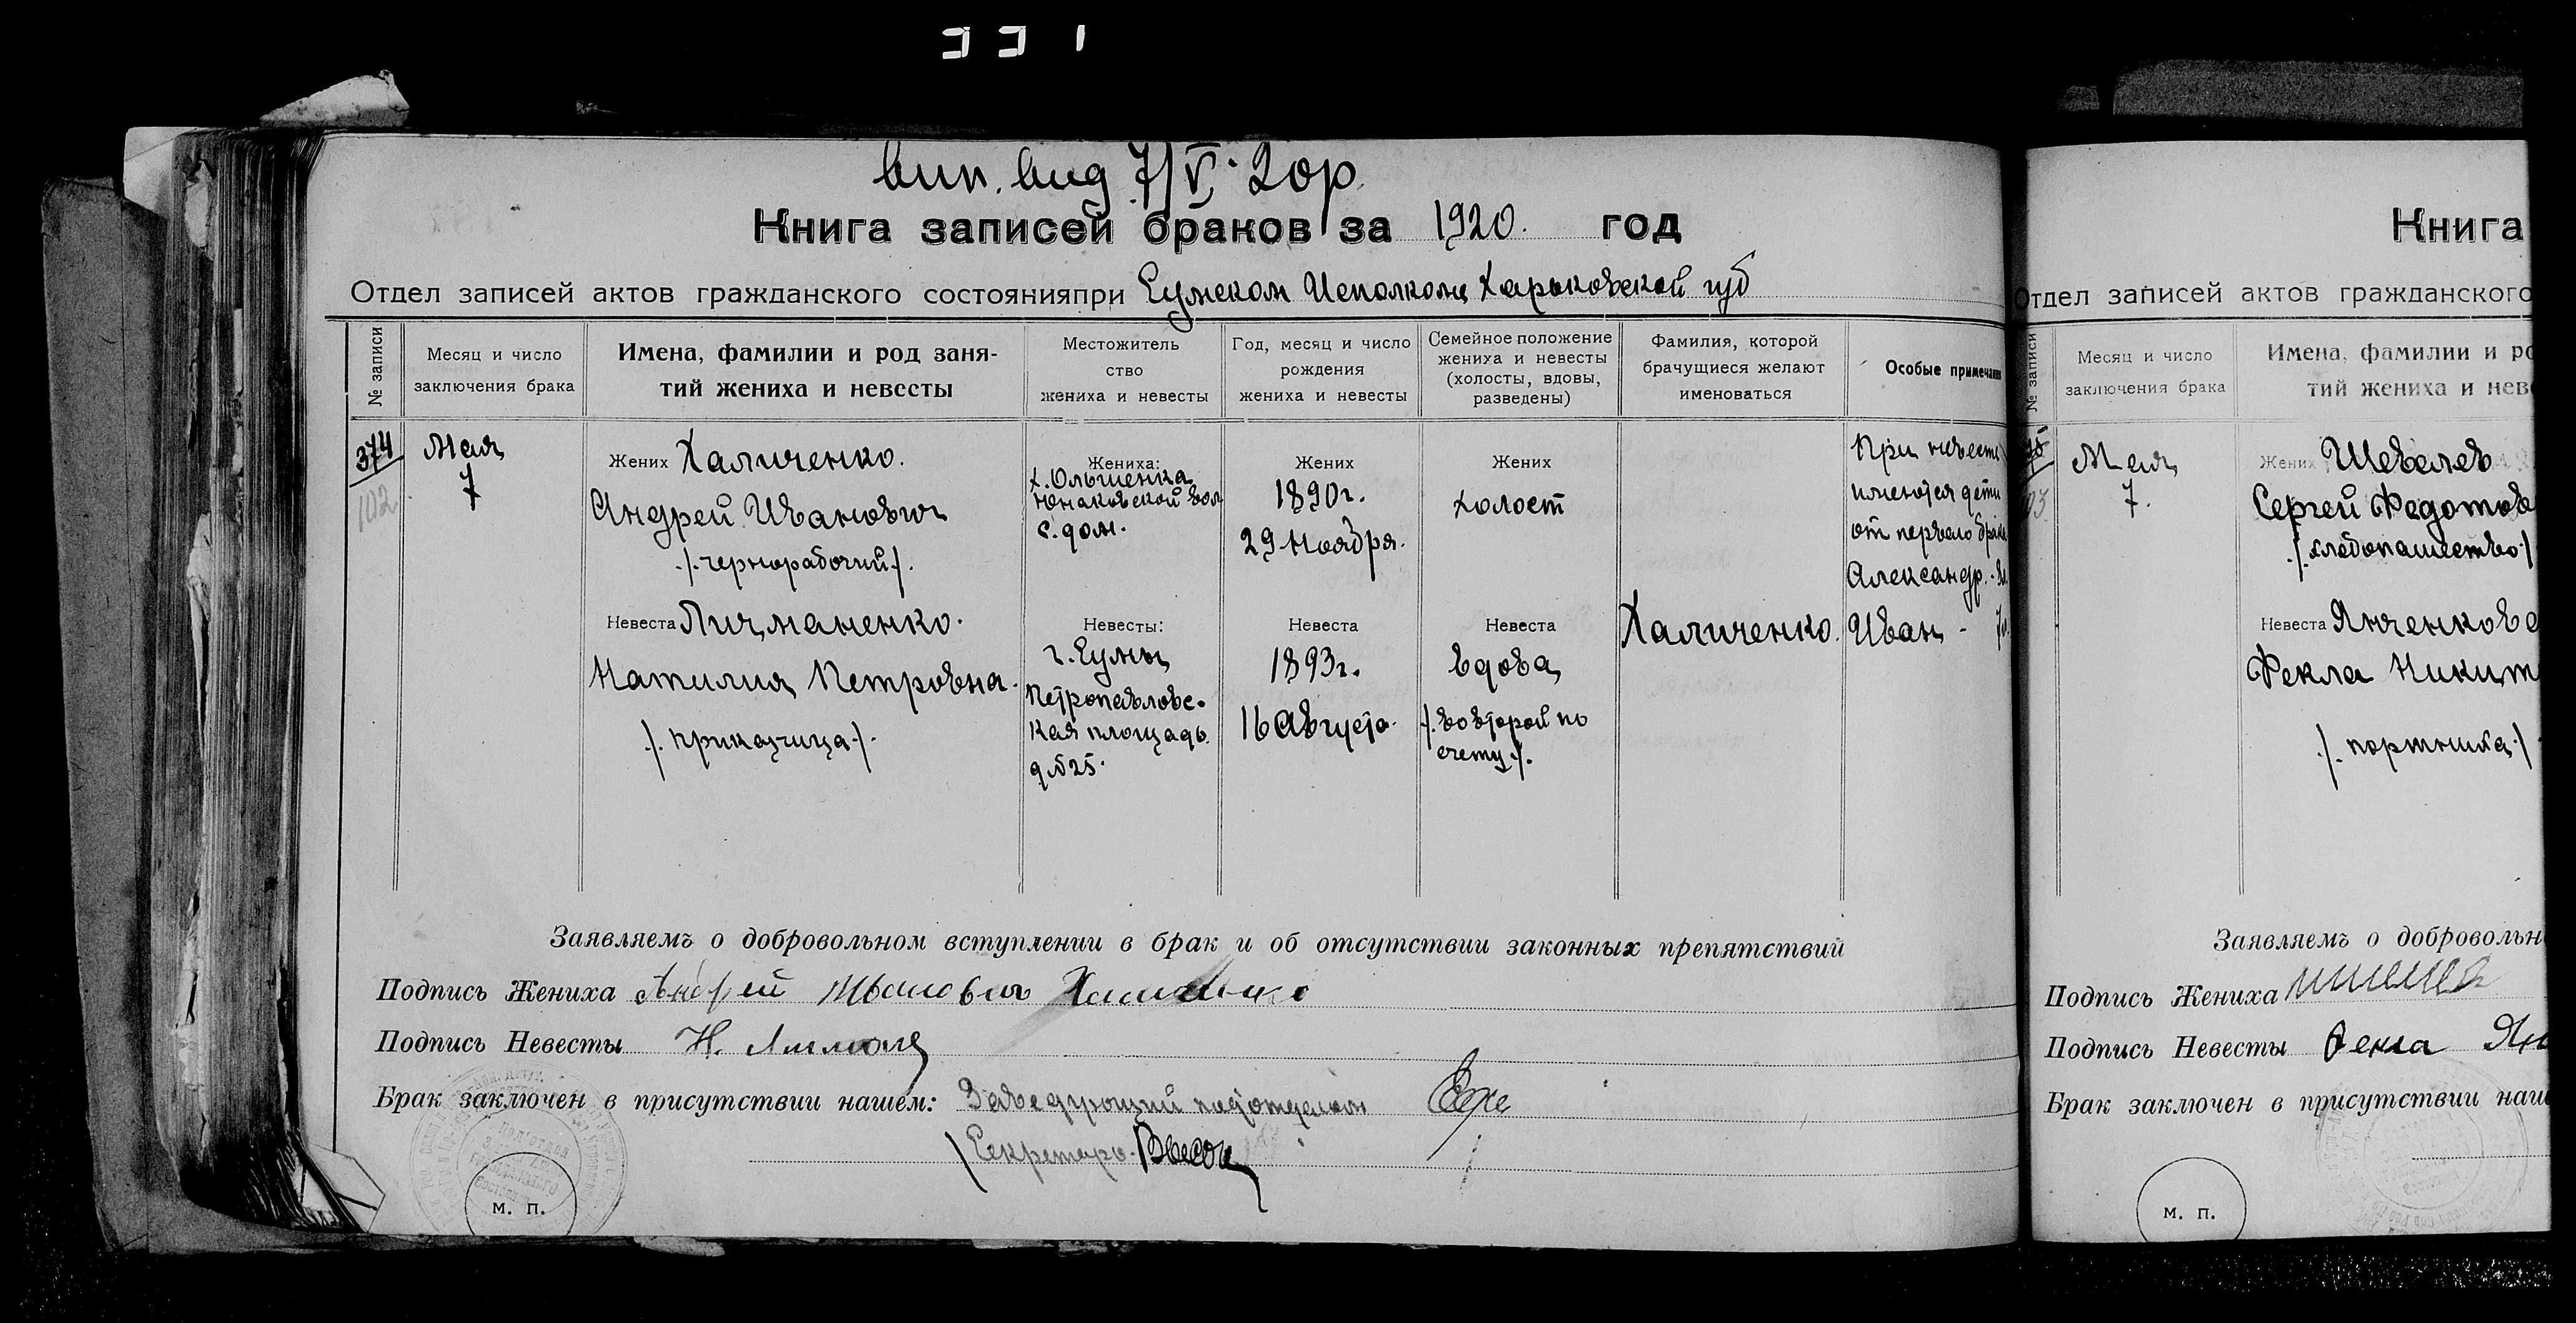 вип. вид 7/V. 20р.
Книга записей браков за 1920. год
Отдел записей актов гражданского состоянияпри Сумском Исполкоме Харьковской губ
№ записи
Месяц и число
заключения брака
Имена, фамилии и род заня-
тий жениха и невесты
Местожитель
ство
жениха и невесты
Год, месяц и число
рождения
жениха и невесты
Семейное положение
жениха и невесты
(холосты, вдовы,
разведены)
Фамилия, которой
брачущиеся желают
именоваться
Особые примечания
374
102
Мая
7
Жених Халиченко.
Андрей Иванович
/.чернорабочий./.
Невеста Лицманенко.
Наталия Петровна.
/. приказчица ./.
Жениха:
х. Ольшенка
Юнаковской вол
с. дом.
Невесты:
г. Сумы
Петропавловс-
кая площадь
д №25.
Жених
1890г.
29 Ноября.
Невеста
1893г.
16 Августа.
Жених
холост
Невеста
вдова
/.во второй по
счету./.
Халиченко.
При невесте
имеются дети
от первого брака
Александр.
Иван -
Заявляемъ о добровольном вступлении в брак и об отсутствии законных препятствий
Подпись Жениха Андрей Иванович Халиченко
Подпись Невесты Н.
Брак заключен в присутствии нашем: Заведующий подотделом
/Секретарь
м. п.
Книга
Отдел записей актов гражданского
№ записи
Месяц и число
заключения брака
Имена, фамилии и ро
тий жениха и неве
Мая
7.
Жених Шевелев
Сергей Федотов
/.хлебопашество./
Невеста Янченкова
Фекла Никит
/. портниха ./
Заявляемъ о добровольн
Подпись Жениха
Подпись Невесты Фекла Ян
Брак заключен в присутствии наш
м. п.